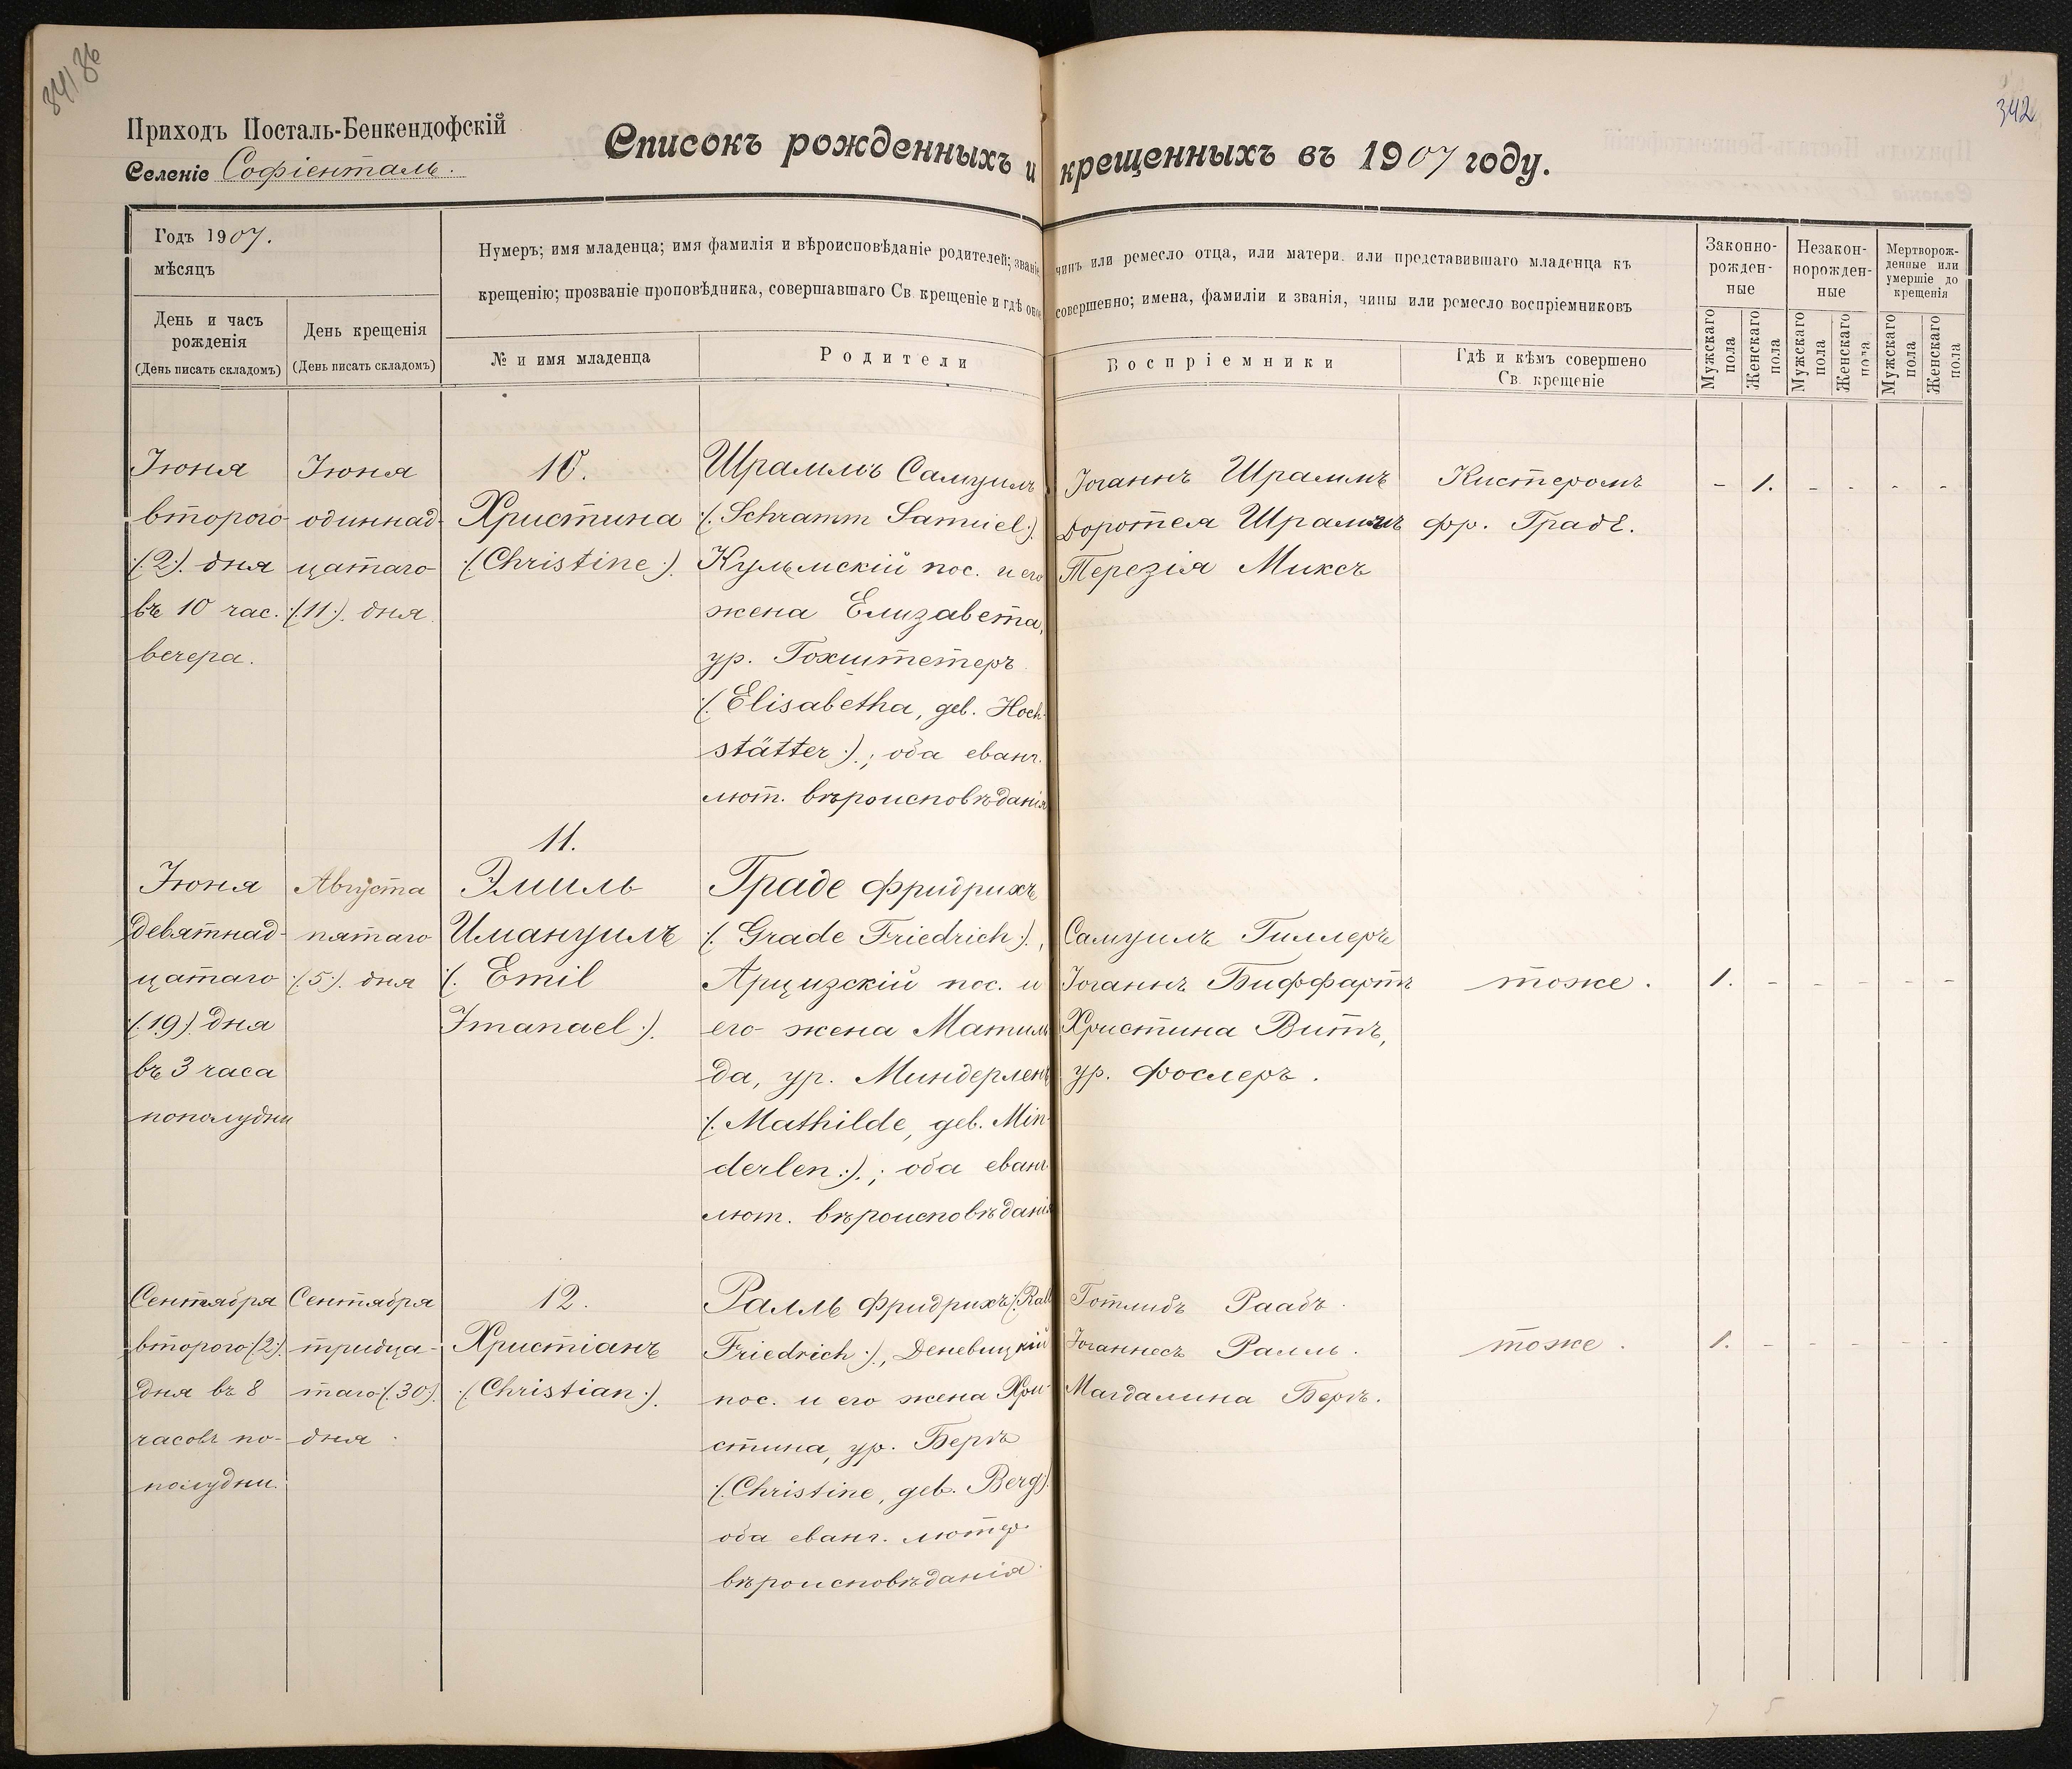 342
Приходъ Посталь-Бенкендофскій
Селеніе Софіенталь.
Списокъ рожденныхъ и крещенныхъ въ 1907 году.
Годъ 1907.
мѣсяцъ
День и часъ рожденія
(День писать складомъ)
День крещенія
(День писать складомъ)
Нумеръ; имя младенца; имя фамилія и вѣроисповѣданіе родителей; званіе чинъ или ремесло отца, или матери. или представившаго младенца къ
крещенію; прозваніе проповѣдника, совершавшаго Св крещеніе и гдѣ оное совершенно; имена, фамиліи и званія, чины или ремесло воспріемниковъ
№ и имя младенца
Родители
Воспріемники
Гдѣ и кѣмъ совершено
Св. крещеніе
Законно-
рожден-
ные
Незакон-
норожден-
ные
Мертворож-
денные или
умершіе до
крещенія
Мужскаго пола
Женскаго пола
Мужскаго пола
Женскаго пола
Мужскаго пола
Женскаго пола
Іюня
второго
(:2:). дня
въ 10 час.
вечера.
Іюня
одиннад-
цатаго
(:11:). дня
10.
Христина
(:Christine:).
Шраммъ Самуилъ
(:Schramm Samuel:)
Кульмскій пос. и его
жена Елизавета,
ур. Гохштетеръ
(:Elisabetha, geb. Hoch-
stätter:).; оба еванг.
лют. вѣроисповѣданія
Іоганнъ Шраммъ
Доротея Шраммъ
Терезія Миксъ
Кистеромъ
Фр. Градé.
- 1. - - - -
Іюня
девятнад-
цатаго
(:19:). дня
въ 3 часа
пополудни
Августа
пятаго
(:5:). дня
11.
Эмиль
Имануилъ
(: Emil
Imanael:).
Граде Фридрихъ
(: Grade Friedrich:).,
Арцизскій пос. и
его жена Матиль
да, ур. Миндерленъ
(:Mathilde, geb. Min-
derlen:).; оба еванг.
лют. вѣроисповѣданія
Самуилъ Гиллеръ
Іоганнъ Биффартъ
Христина Витъ,
ур. Фослеръ.
тоже.
1. - - - - -
Сентября
второго (:2:).
дня въ 8
часовъ по-
полудни.
Сентября
тридца-
таго (:30:).
дня.
12.
Христіанъ
(:Christian:).
Ралль Фридрихъ (:Rall
Friedrich:)., Деневицкій
пос. и его жена Хри-
стина, ур. Бергъ
(:Christine, geb. Berg:)
оба еванг. лютер.
вѣроисповѣданія.
Готлибъ Раабъ.
Іоганнесъ Ралль.
Магдалина Бергъ.
тоже.
1. - - - - -
7 5